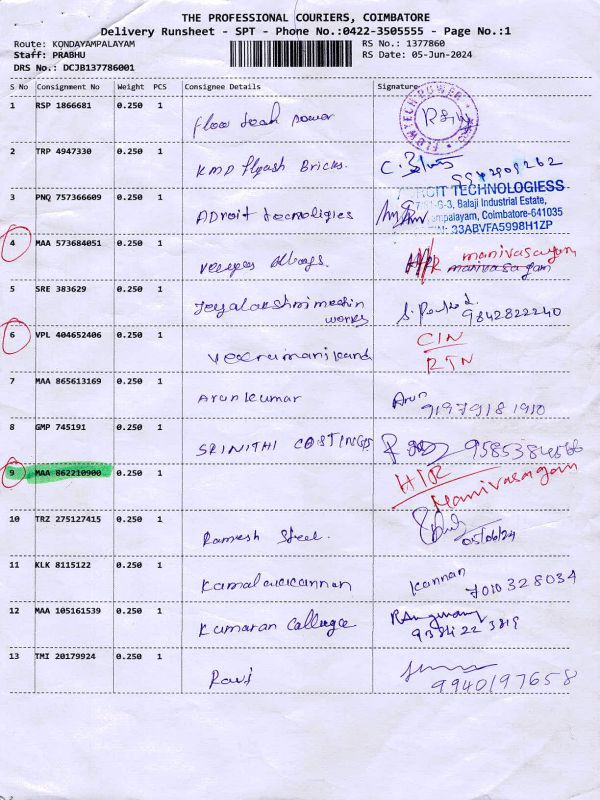 THE PROFESSIONAL COURIERS, COIMBATORE
Delivery Runsheet - SPT - Phone No.:0422-3505555 - Page No.:1
Route: KONDAYAMPALAYAM
RS No.: 1377860
Staff: PRABHU
RS Date: 05-Jun-2024
DRS No.: DCJB137786001
S No Consignment No Weight PCS Consignee Details Signature
1 RSP 1866681 0.250 1
Flow Teah Power
FLOWTECH POWER
2 TRP 4947330 0.250 1
KMP Flyash Bricks.
9942909262
3 PNQ 757366609 0.250 1
ADroit Tecnoligies
ADROIT TECHNOLOGIESS
Balaji Industrial Estate,
Coimbatore-641035
33ABVFA5998H1ZP
4 MAA 573684051 0.250 1
manivasagam
manivasagam
5 SRE 383629 0.250 1
Jeyalakshmi mechin
works
9842822240
6 VPL 404652406 0.250 1
Veeramanikand
CIN
RTN
7 MAA 865613169 0.250 1
Arun kumar
Arun
91979181910
8 GMP 745191 0.250 1
SRINITHI COSTINGS
9585384566
9 MAA 862210900 0.250 1
Manivasagam
10 TRZ 275127415 0.250 1
Ramesh Steel.
05/06/24
11 KLK 8115122 0.250 1
Kannan
7010328034
12 MAA 105161539 0.250 1
Kumaran Collage
9384223819
13 TMI 20179924 0.250 1
Ravi
9940197658